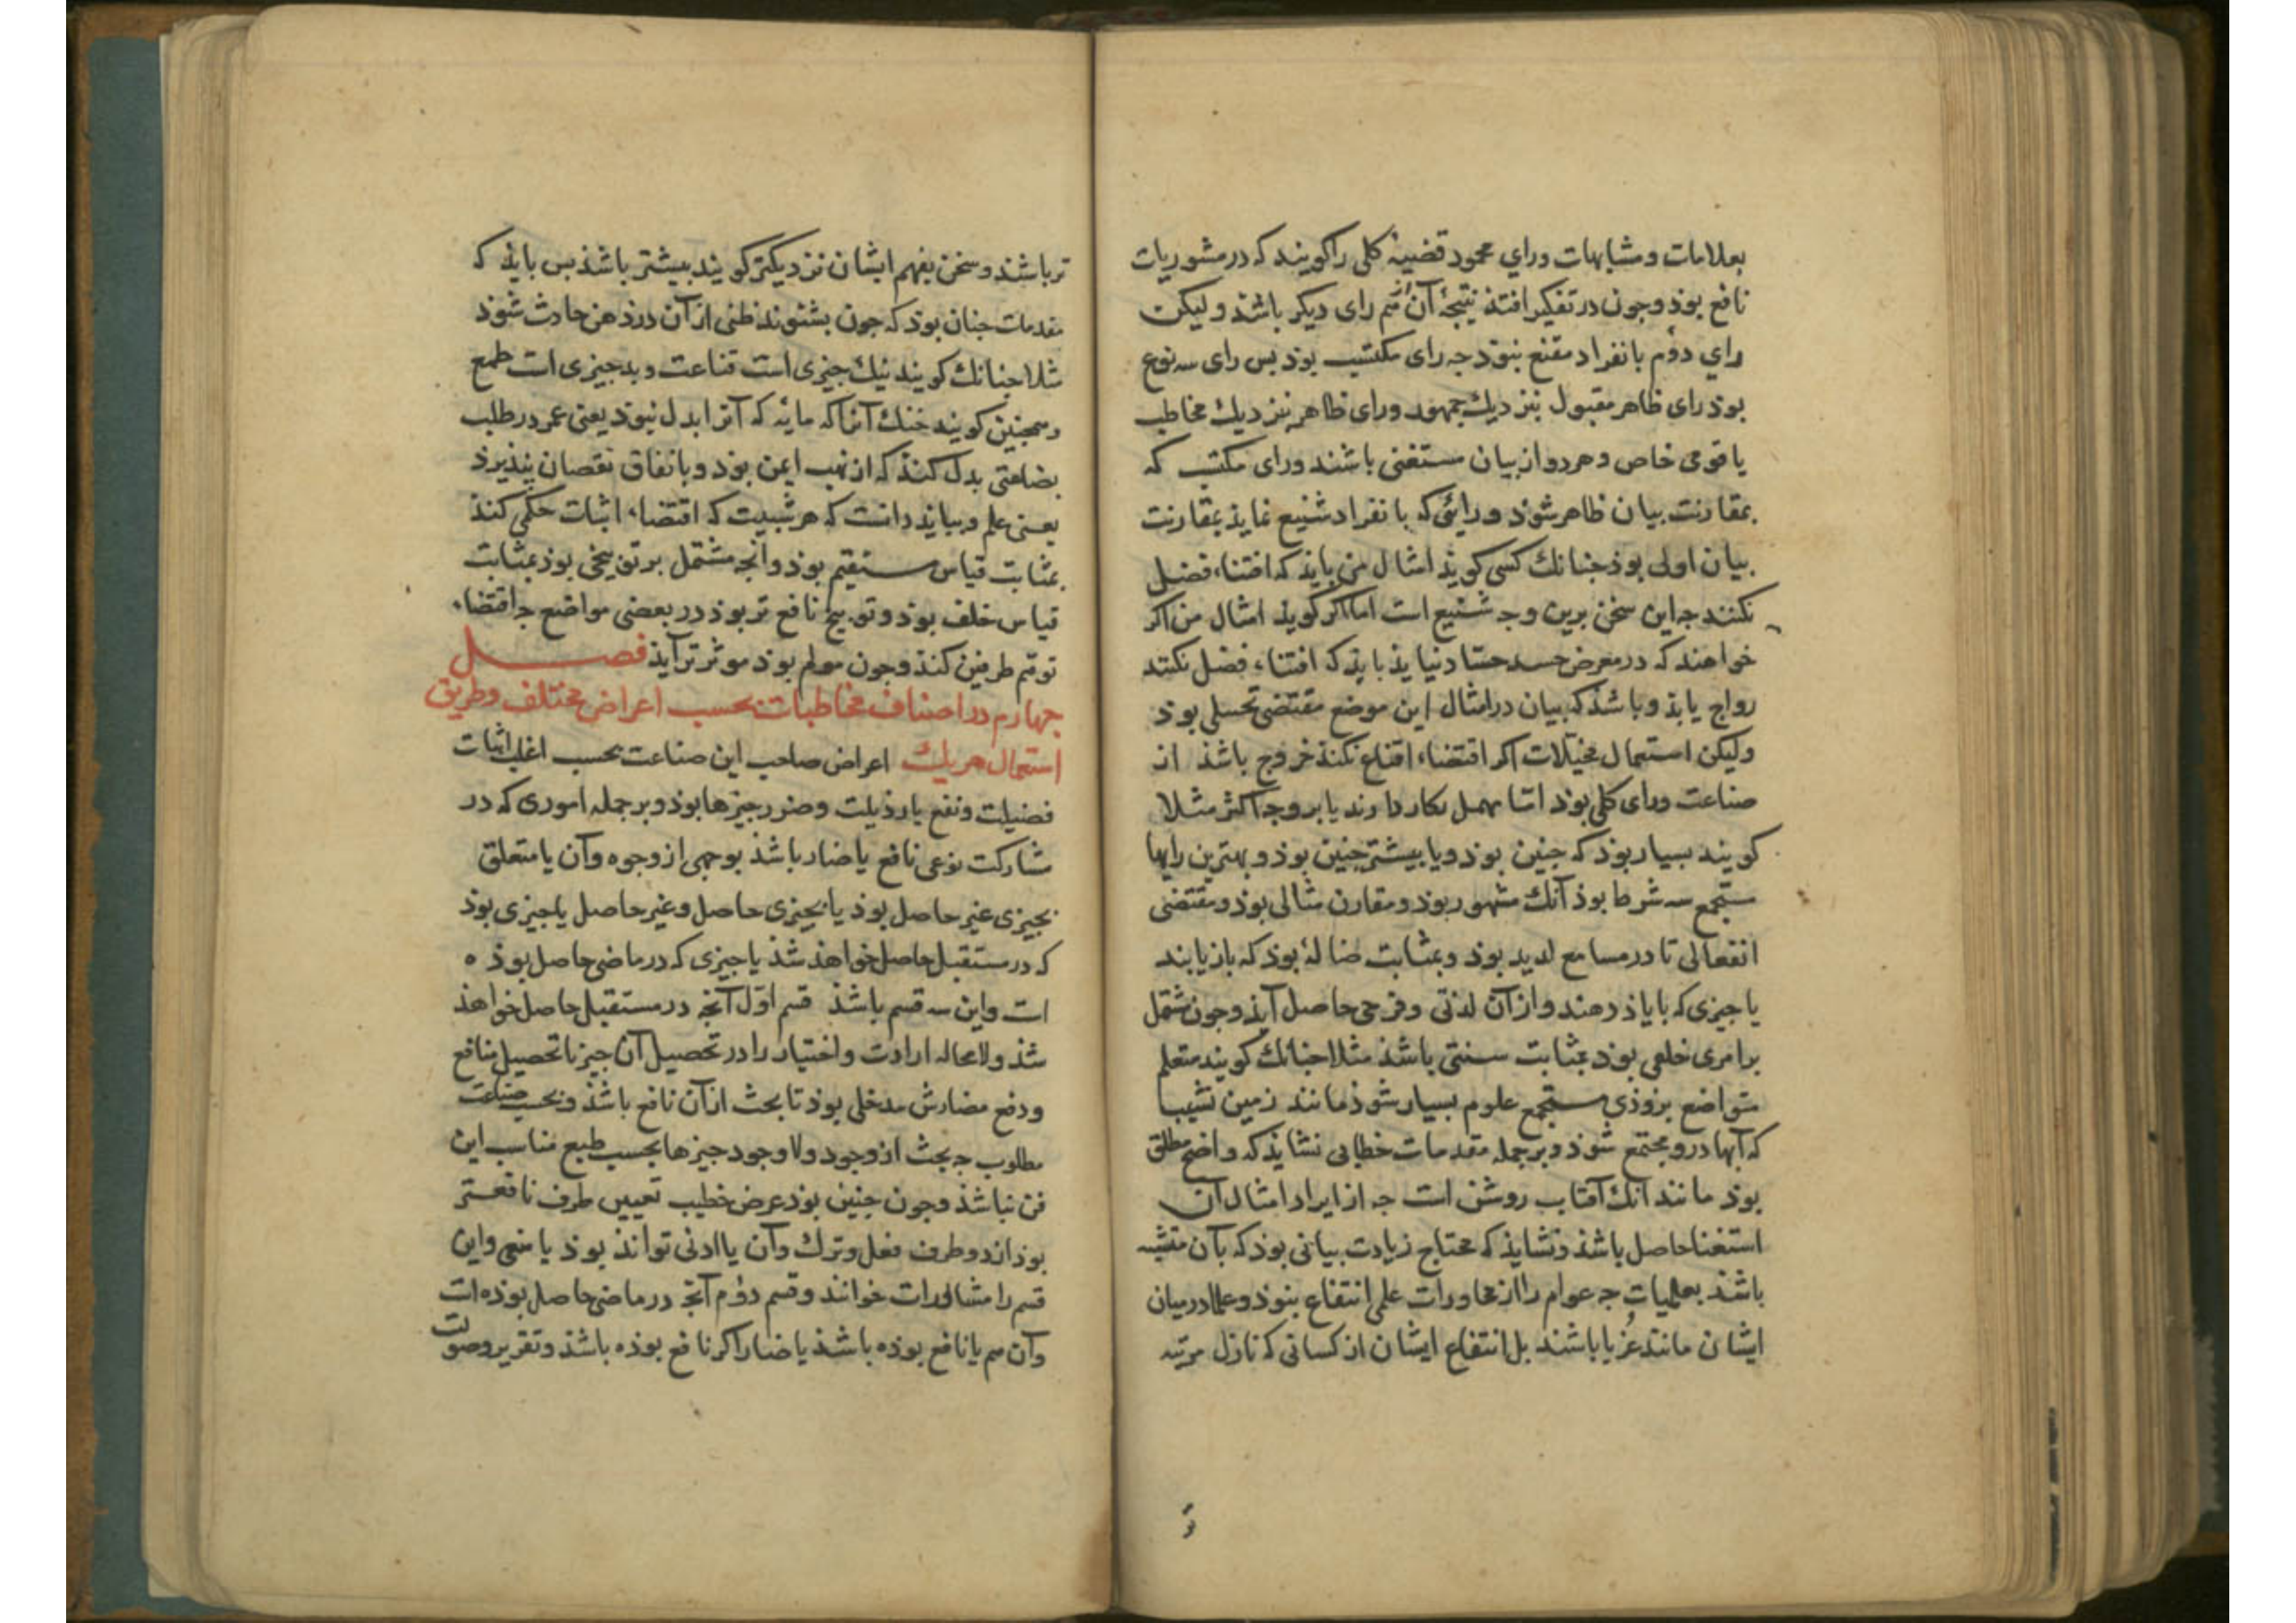 بعلامات و مشابهات و رای محمود قضیهٔ کلی را کویند که در مشوریات
نافع بوذ و جون در تفکیر افتذ نتیجهٔ آن هم رای دیکر باشذ و لیکن
رای دوم بانفراد مقنع نبوذ جه رای مکتسب بوذ بس رای سه نوع
بوذ رای ظاهر مقبول بنزدیك جمهور و رای ظاهر بنزدیك مخاطب
یا قومی خاص و هر دو از بیان مستغنی باشند و رای مکتسب که
بمقارنت بیان ظاهر شوذ و رائی که بانفراد شنیع نمایذ بمقارنت
بیان اولی بوذ جنانك کسی کویذ امثال من بایذ که اقتناء فضل
نکنند جه این سخن برین وجه شنیع است اما اکر کویذ امثال من اکر
خواهند که در معرض حسد حساد نیایذ بایذ که اقتناء فضل نکنند
رواج یابذ و باشذ که بیان در امثال این موضع مقتضی تخییلی بوذ
ولیکن استعمال مخیلات اکر اقتضاء اقناع نکنذ خروج باشذ از
صناعت و رای کلی بوذ اما مهمل بکار دارند یا بر وجه اکثر مثلا
کویند بسیار بوذ که جنین بوذ و یا بیشتر جنین بوذ و بهترین رایها
مستجمع سه شرط بوذ آنك مشهور بوذ و مقارن مثالی بوذ و مقتضی
انفعالی تا در مسامع لذیذ بوذ و بمثابت ضالهٔ بوذ که باز یابند
یا جیزی که با یاذ دهند و از آن لذتی و فرحی حاصل آیذ و جون مشتمل
بر امری خلقی بوذ بمثابت سنتی باشذ مثلا جنانك کویند متعلم
متواضع بزوذی مستجمع علوم بسیار شوذ مانند زمین نشیب
که آبها درو مجتمع شوذ و بر جمله مقدمات خطابی نشایذ که واضح مطلق
بوذ مانند آنك آفتاب روشن است جه از ایراد امثال آن
استغنا حاصل باشذ و نشایذ که محتاج زیادت بیانی بوذ که بآن متشبه
باشذ بعلمیات جه عوام را از محاورات علمی انتفاع نبوذ و علما در میان
ایشان مانند غربا باشند بل انتفاع ایشان از کسانی که نازل مرتبه
تر
تر باشند و سخن بفهم ایشان نزدیکتر کویند بیشتر باشذ بس بایذ که
مقدمات جنان بوذ که جون بشنوند ظنی از آن در ذهن حادث شوذ
مثلا جنانك کویند نیك جیزی است قناعت و بد جیزی است طمع
و همجنین کویند خنك آنرا که مایهٔ که آنرا بدل نبوذ یعنی عمر در طلب
بضاعتی بدل کنذ که از نهب ایمن بوذ و بانفاق نقصان نپذیرذ
یعنی علم و ببایذ دانست که هر تثبیت که اقتضاء اثبات حکمی کنذ
بمثابت قیاس مستقیم بوذ و آنجه مشتمل بر توبیخی بوذ بمثابت
قیاس خلف بوذ و توبیخ نافع تر بوذ در بعضی مواضع جه اقتضاء
توهم طرفین کنذ و جون مولم بوذ موثرتر آیذ فصل
جهارم در اصناف مخاطبات بحسب اعراض مختلف و طریق
استعمال هر یك اعراض صاحب این صناعت بحسب اغلب اثبات
فضیلت و نفع یا رذیلت و ضرر جیزها بوذ و بر جمله اموری که در
مشارکت نوعی نافع یا ضار باشذ بوجهی از وجوه و آن یا متعلق
بجیزی غیر حاصل بوذ یا بجیزی حاصل و غیر حاصل یا جیزی بوذ
که در مستقبل حاصل خواهذ شذ یا جیزی که در ماضی حاصل بوذه
است و این سه قسم باشذ قسم اول آنجه در مستقبل حاصل خواهذ
شذ و لا محاله ارادت و اختیار را در تحصیل آن جیز تا تحصیل منافع
و دفع مضارش مدخلی بوذ تا بحث از آن نافع باشذ و بحسب صناعت
مطلوب جه بحث از وجود و لا وجود جیزها بحسب طبع مناسب این
فن نباشذ و جون جنین بوذ عرض خطیب تعیین طرف نافعتر
بوذ از دو طرف فعل و ترك و آن یا اذنی تواند بوذ یا منعی و این
قسم را مشاورات خوانند و قسم دوم آنجه در ماضی حاصل بوذه است
و آن هم یا نافع بوذه باشذ یا ضار اکر نافع بوذه باشذ و تقریر وصولت